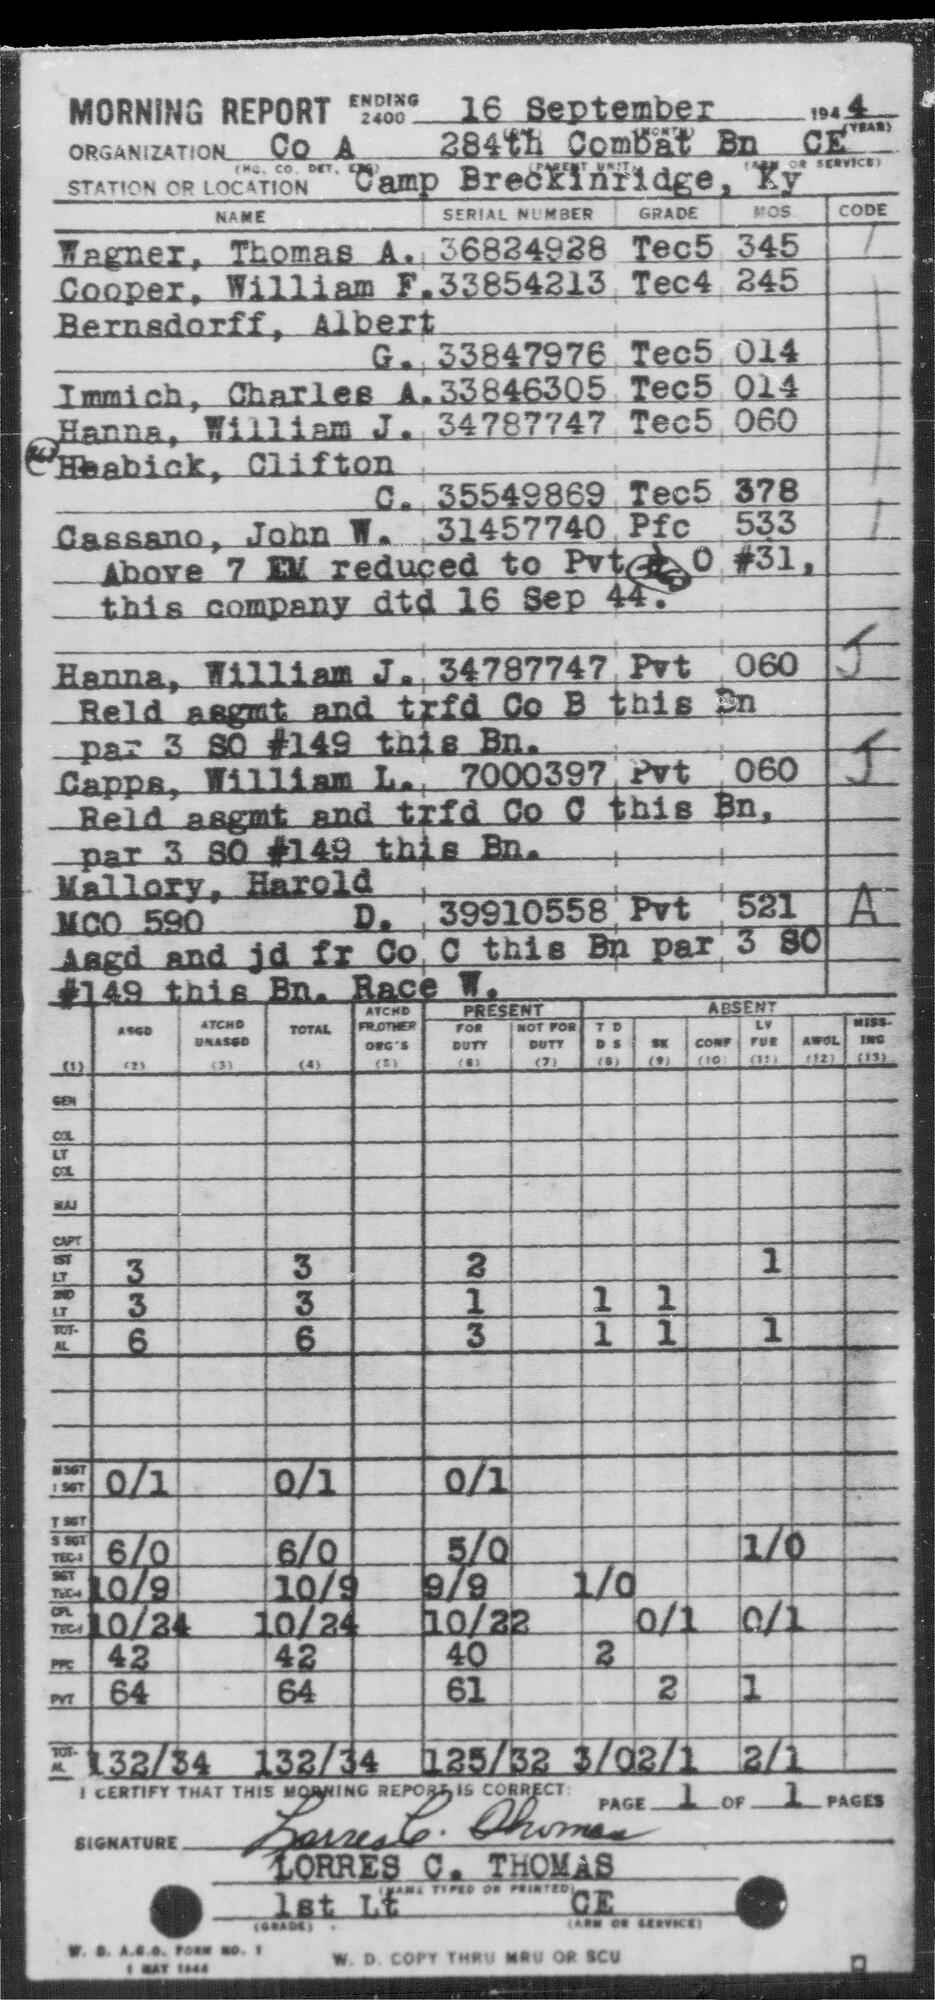 MORNING REPORT ENDING 2400 16 September 1944
(DAY) (MONTH) (YEAR)
ORGANIZATION Co A 284th Combat Bn CE
(HQ. CO. DET. ETC) (PARENT UNIT) (ARM OR SERVICE)
STATION OR LOCATION Camp Breckinridge, Ky
NAME SERIAL NUMBER GRADE MOS. CODE
Wagner, Thomas A. 36824928 Tec5 345
Cooper, William F. 33854213 Tec4 245
Bernsdorff, Albert
G. 33847976 Tec5 014
Immich, Charles A. 33846305 Tec5 014
Hanna, William J. 34787747 Tec5 060
Heabick, Clifton
C. 35549869 Tec5 378
Cassano, John W. 31457740 Pfc 533
Above 7 EM reduced to Pvt O #31,
this company dtd 16 Sep 44.
Hanna, William J. 34787747 Pvt 060 J
Reld asgmt and trfd Co B this Bn
par 3 SO #149 this Bn.
Capps, William L. 7000397 Pvt 060 J
Reld asgmt and trfd Co C this Bn,
par 3 SO #149 this Bn.
Mallory, Harold
MCO 590 D. 39910558 Pvt 521 A
Asgd and jd fr Co C this Bn par 3 SO
#149 this Bn. Race W.
PRESENT ABSENT
ASGD ATCHD UNASGD TOTAL ATCHD FR.OTHER ORG'S FOR DUTY NOT FOR DUTY T D D S SK CONF LV FUR AWOL MISSING
(1) (2) (3) (4) (5) (6) (7) (8) (9) (10) (11) (12) (13)
GEN
COL
LT COL
MAJ
CAPT
1ST LT 3 3 2 1
2ND LT 3 3 1 1 1
TOTAL 6 6 3 1 1 1
M SGT 1 SGT 0/1 0/1 0/1
T SGT
S SGT TEC-3 6/0 6/0 5/0 1/0
SGT TEC-4 10/9 10/9 9/9 1/0
CPL TEC-5 10/24 10/24 10/22 0/1 0/1
PFC 42 42 40 2
PVT 64 64 61 2 1
TOTAL 132/34 132/34 125/32 3/0 2/1 2/1
I CERTIFY THAT THIS MORNING REPORT IS CORRECT:
PAGE 1 OF 1 PAGES
SIGNATURE Lorres C. Thomas
LORRES C. THOMAS
(NAME TYPED OR PRINTED)
1st Lt CE
(GRADE) (ARM OR SERVICE)
W. D. A.G.O. FORM NO. 1
1 MAY 1944
W. D. COPY THRU MRU OR SCU